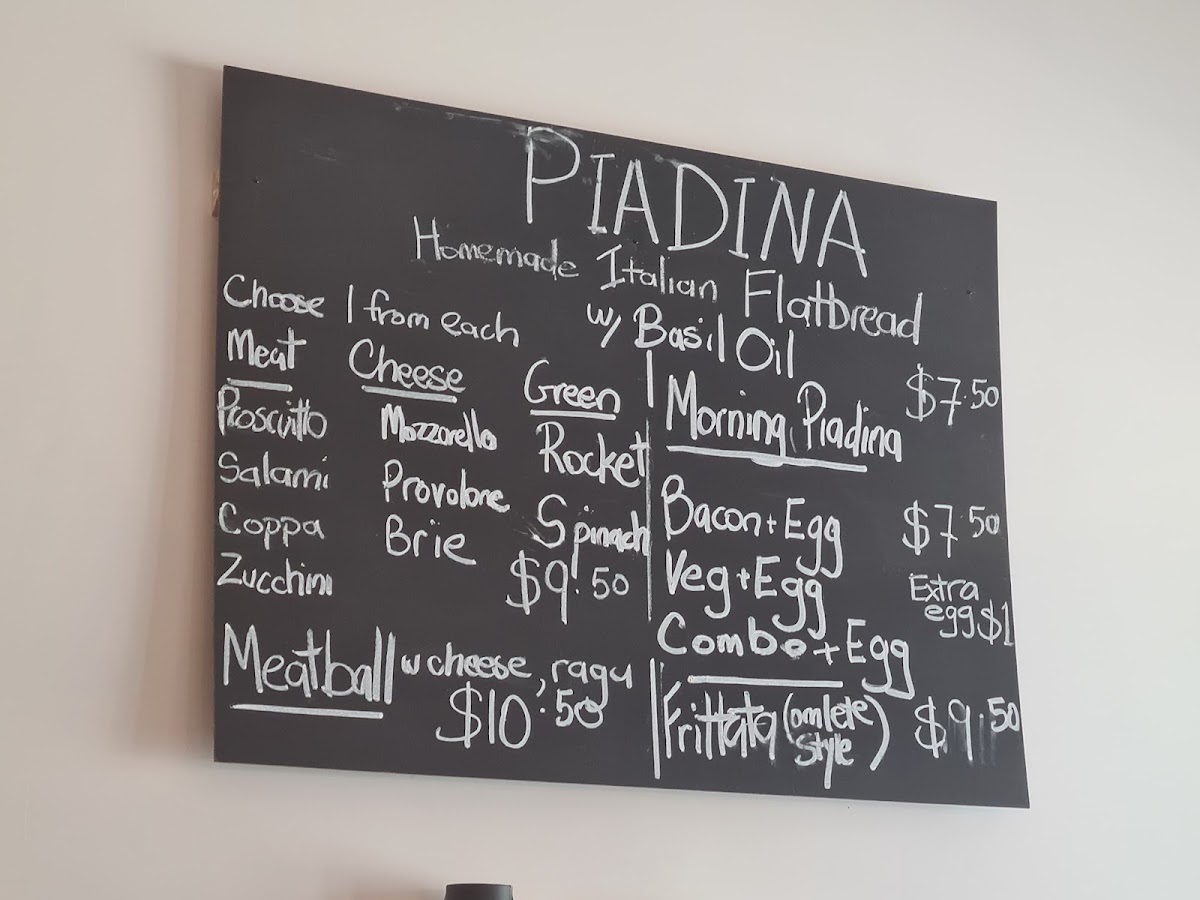 PIADINA
Homemade Italian Flatbread
w/ Basil Oil
Choose 1 from each
Meat
Prosciutto
Salami
Coppa
Zucchini
Cheese
Mozzarella
Provolone
Brie
Green
Rocket
Spinach
$9.50
Meatball w cheese, ragu
$10.50
Morning Piadina $7.50
Bacon + Egg $7.50
Veg + Egg Extra
egg $1
Combo + Egg
Frittata (omlete $9.50
style)